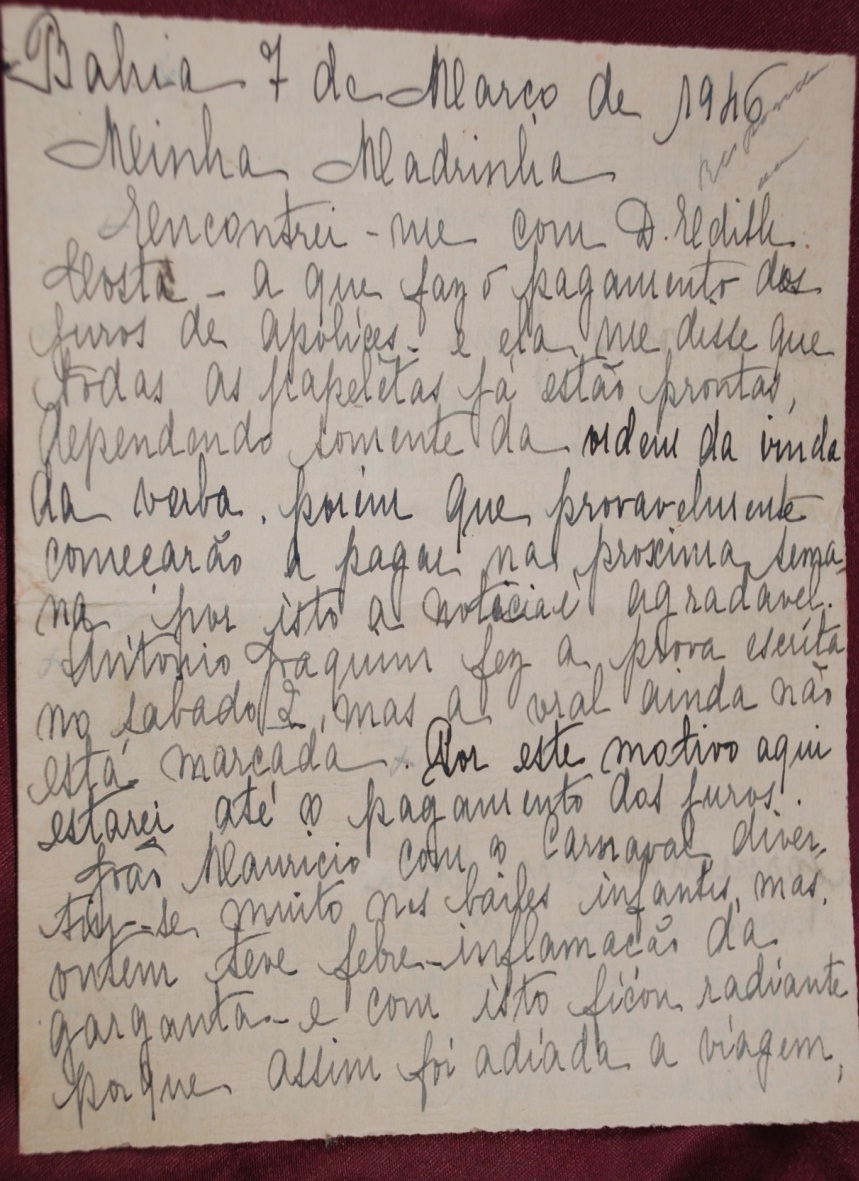 Bahia 7 de Março de 1946
Minha Madrinha
Encontrei-me com D. Edith
Costa - a que faz o pagamento dos
juros de apolices - e ela me disse que
todas as papelêtas já estão prontas,
dependendo somente da ordem da vinda
da verba, porem que provavelmente
começarão a pagar na proxima sema-
na por isto a noticia é agradavel.
Antonio Joaquim fez a prova escrita
no sabado 2, mas a oral ainda não
está marcada. Por este motivo aqui
estarei até o pagamento dos juros.
João Mauricio com o Carnaval diver-
tiu-se muito nos bailes infantis, mas,
ontem teve febre - inflamação da
garganta - e com isto ficou radiante
porque assim foi adiada a viagem,